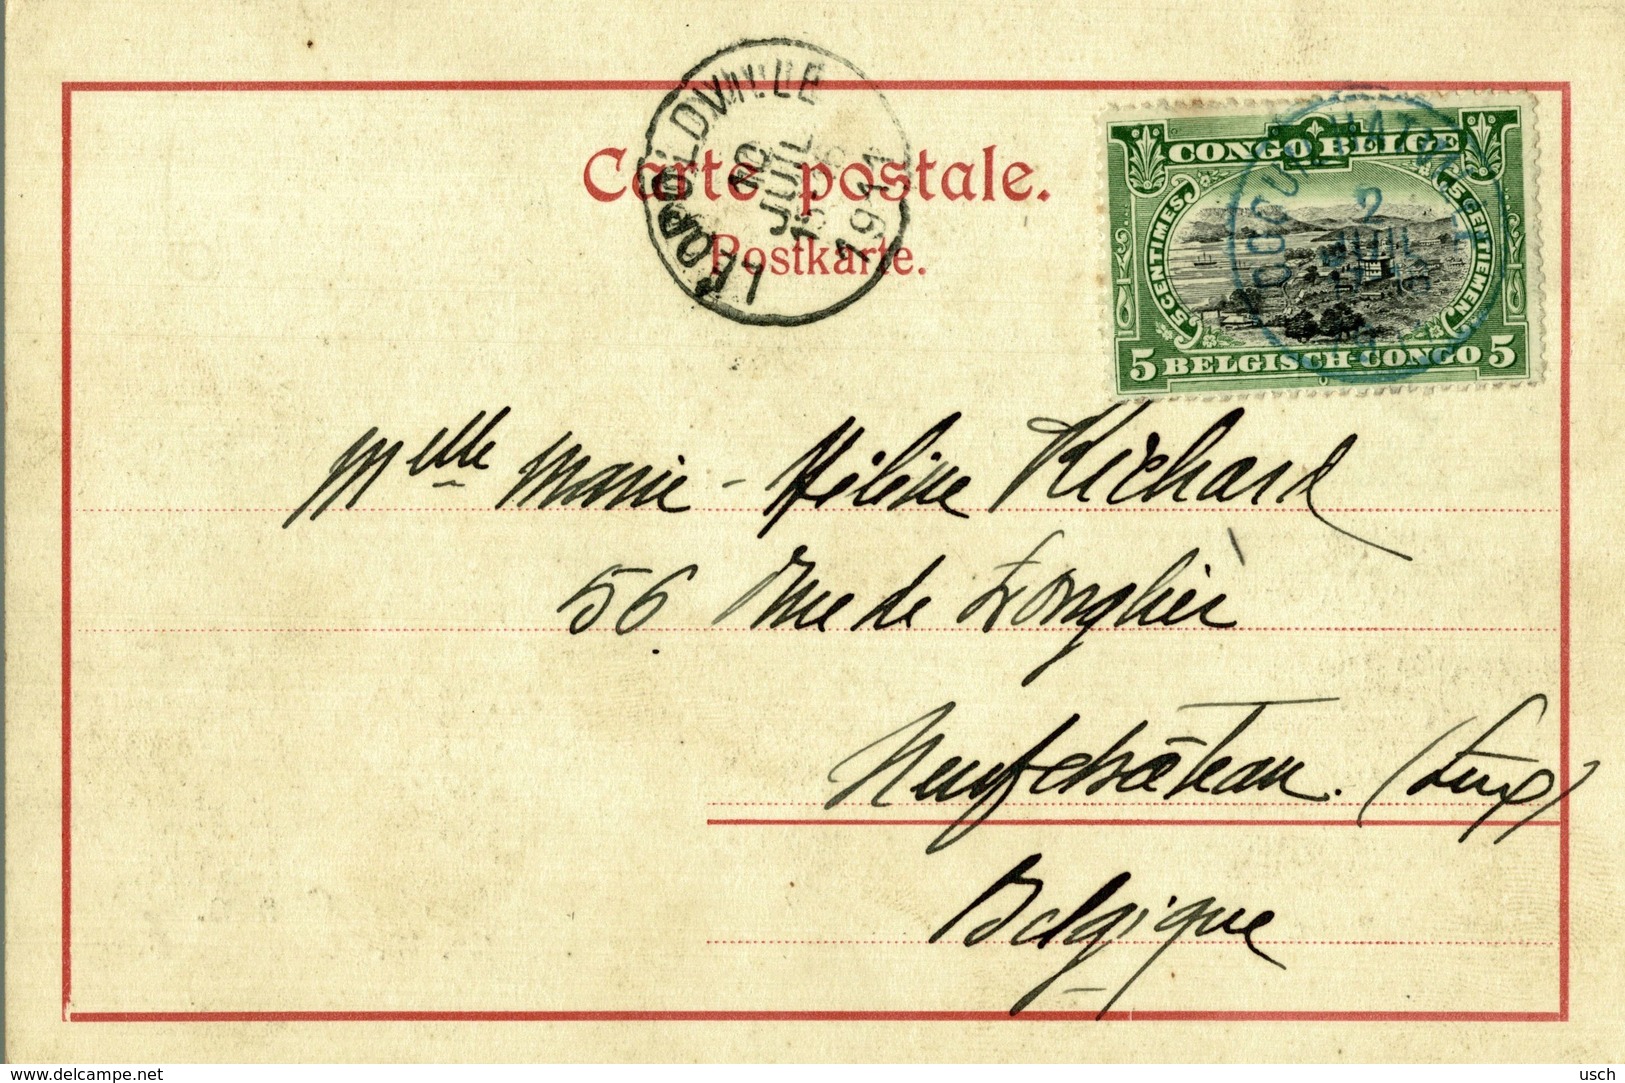 LEOPOLDVILLE
10
JUIL
1911
Carte postale.
Postkarte.
CONGO BELGE
5 CENTIMES
5 CENTIEMEN
5 BELGISCH-CONGO 5
COQUILHATVILLE
2
JUIL
Melle Marie-Hélène Richard
56 Rue de Longlier
Neufchâteau. (Lux)
Belgique
www.delcampe.net
usch